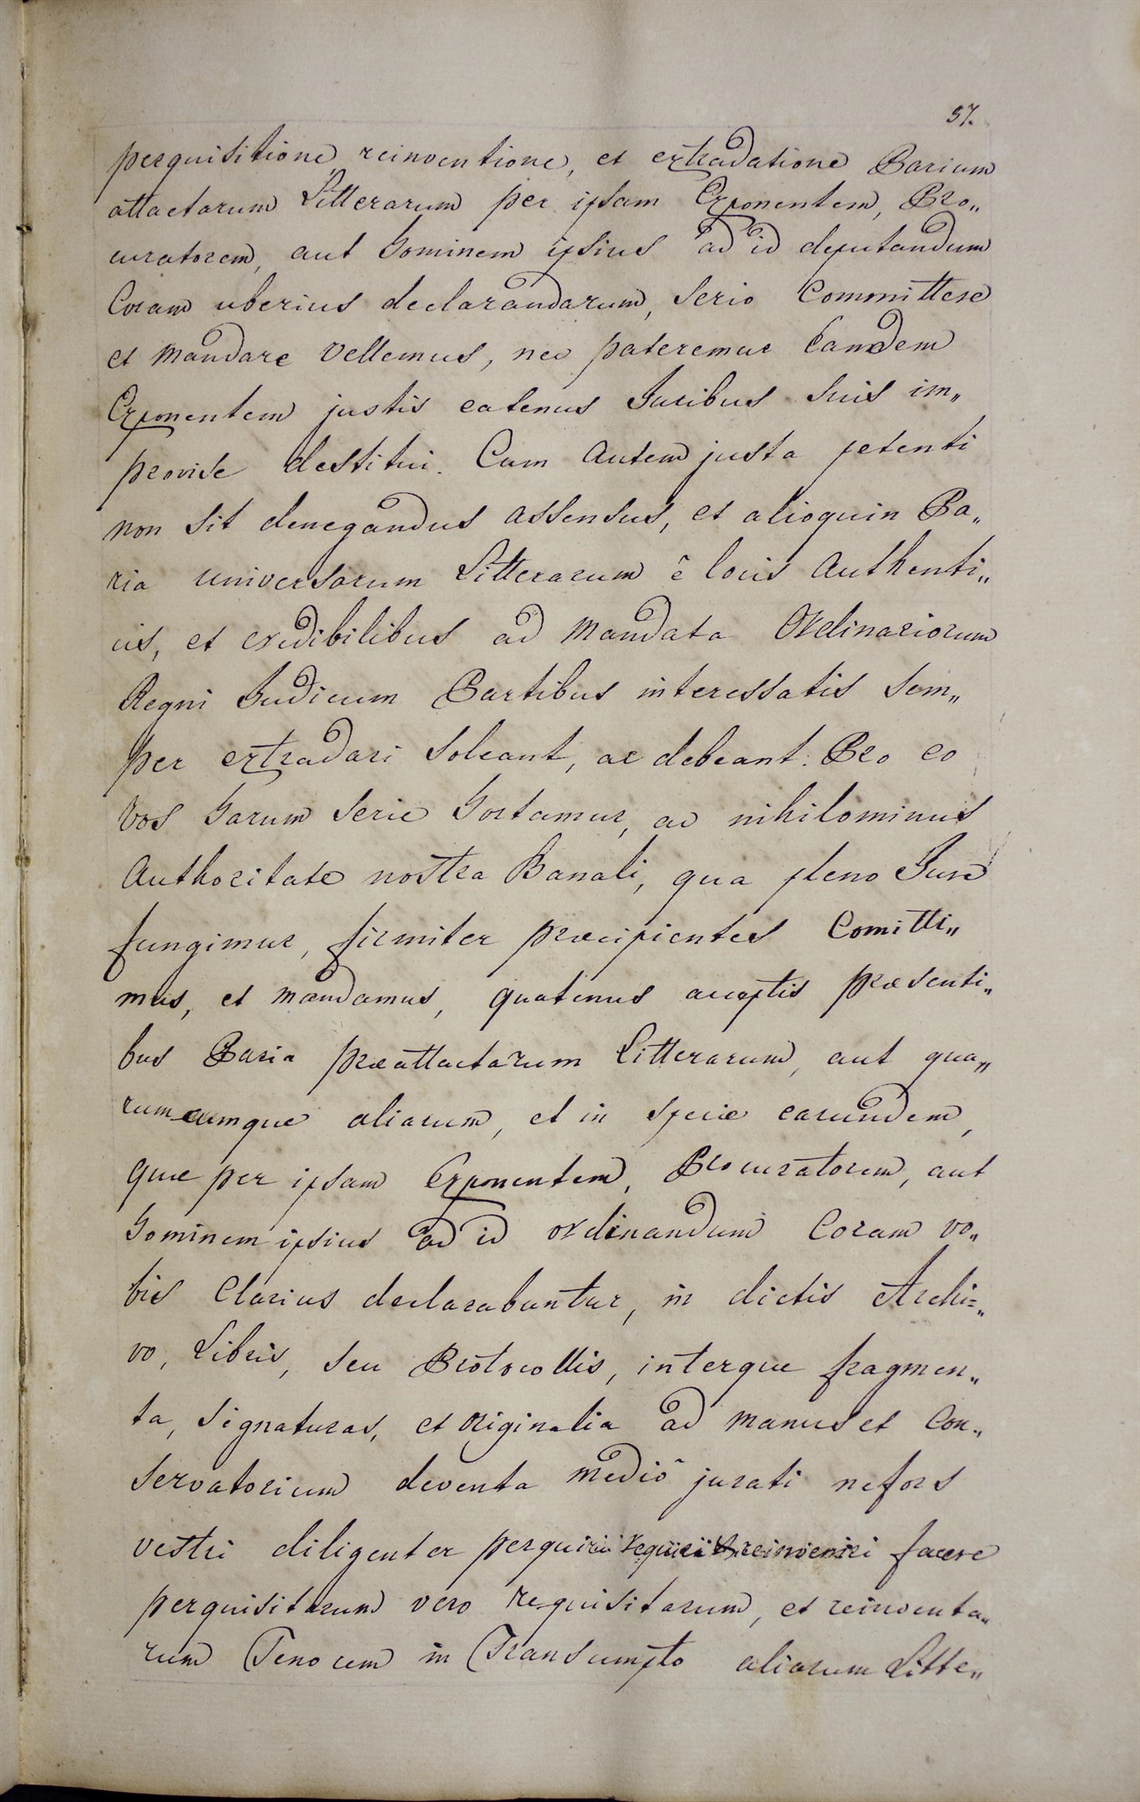 57.
perquisitione, reinventione, et extradatione Parium
attactarum Litterarum per ipsam Exponentem, Pro„
curatorem, aut hominem ipsius ad id deputandum
Coram uberius declarandarum, serio Committere
et mandare vellemus, nec pateremur Eamdem
Exponentem justis eatenus Juribus suis im„
provise destitui. Cum autem justa petenti
non sit denegandus assensus, et alioquin Pa„
ria universarum Litterarum è locis Authenti„
cis, et credibilibus ad mandata Ordinariorum
Regni Judicum Partibus interessatis sem„
per extradari soleant, ac debeant. Pro eo
vos harum serie hortamur, ac nihilominus
Authoritate nostra Banali, qua pleno Jure
fungimur, firmiter præcipientes Comitti„
mus, et mandamus, quatenus acceptis præsenti„
bus Paria præattactarum Litterarum, aut qua„
rumcumque aliarum, et in specie earundem,
quæ per ipsam Exponentem, Procuratorem, aut
hominem ipsius ad id ordinandum Coram vo„
bis Clarius declarabuntur, in dictis Archi„
vo, Libris, seu Protocollis, interque fragmen„
ta, signaturas, et originalia ad manus et Con„
servatorium deventa mediô jurati nefors
vestri diligenter perquiri requiri & reinveniri facere
perquisitarum vero requisitarum, et reinventa„
rum Tenorem in Transumpto aliarum Litte„